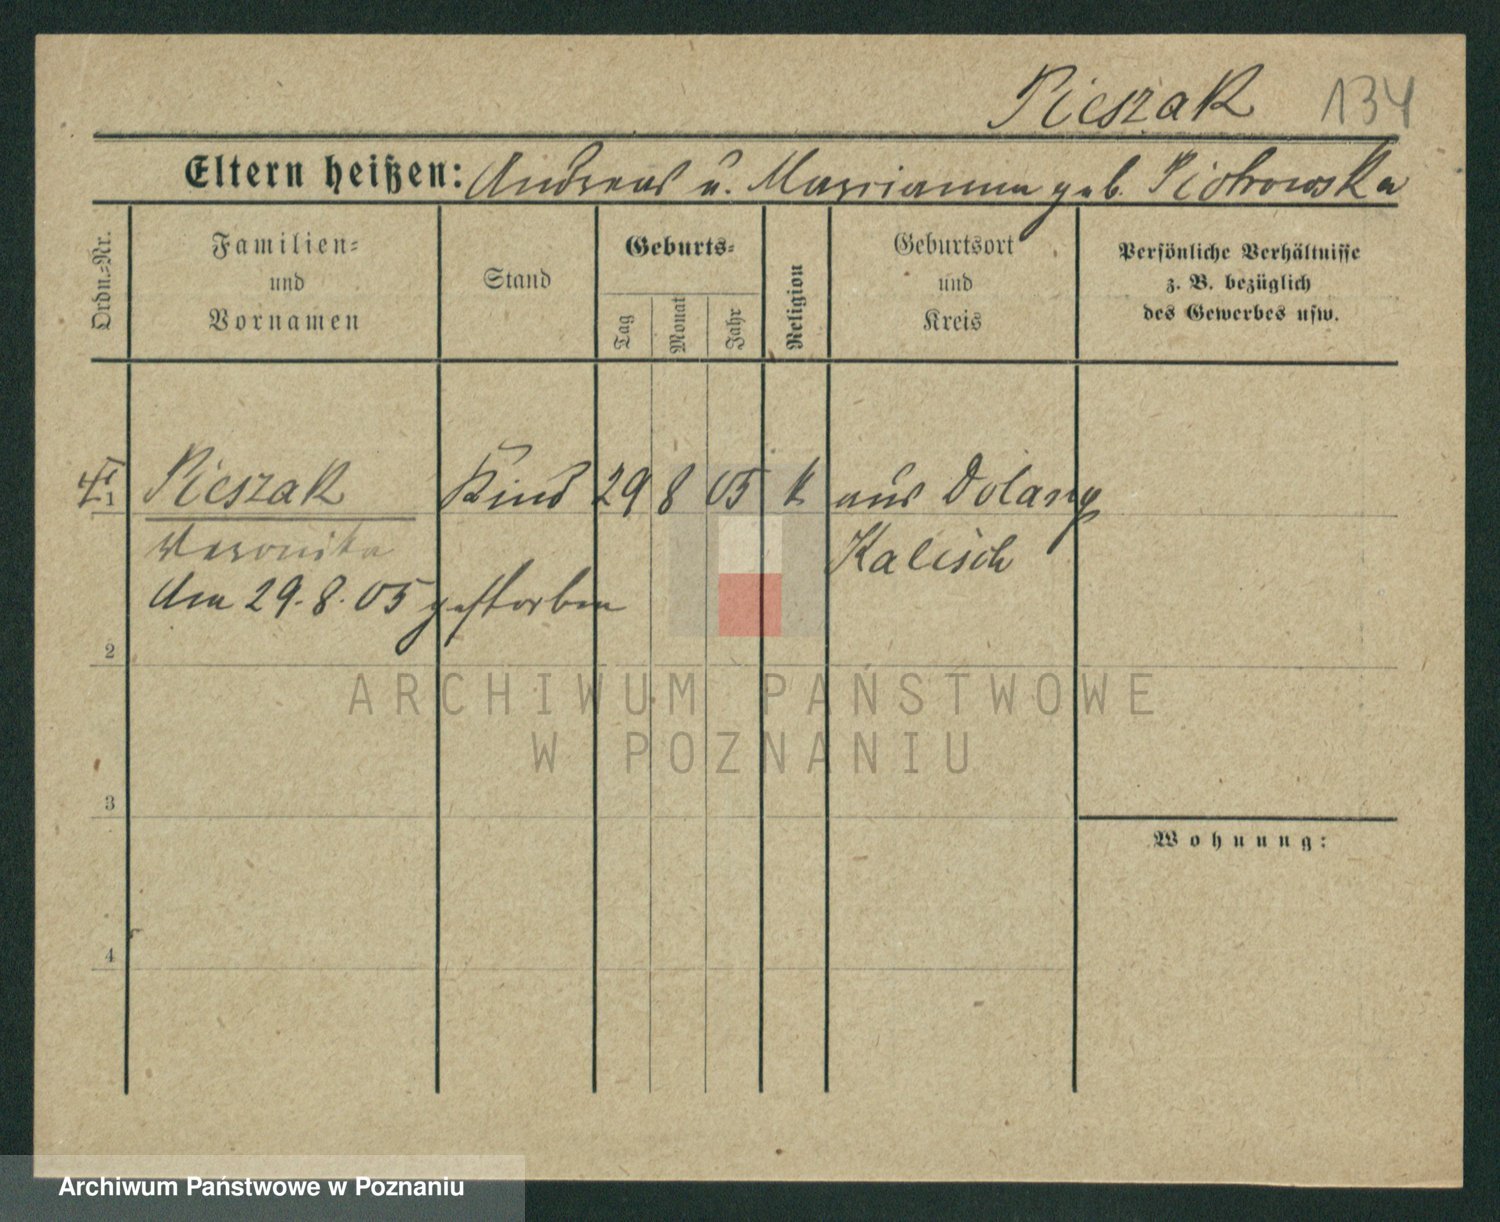 Pieszak 134
Eltern heißen: Andreas u. Marrianna geb. Piotrowska
Ordn.=Nr.
Familien=
und
Vornamen
Stand
Geburts=
Tag
Monat
Jahr
Religion
Geburtsort
und
Kreis
Persönliche Verhältnisse
z. B. bezüglich
des Gewerbes usw.
1 Pieszak Kind 29 8 05 k aus Dolany
Veronika Kalisch
Am 29.8.05 gestorben
2
ARCHIWUM PAŃSTWOWE
W POZNANIU
3
Wohnung:
4
Archiwum Państwowe w Poznaniu